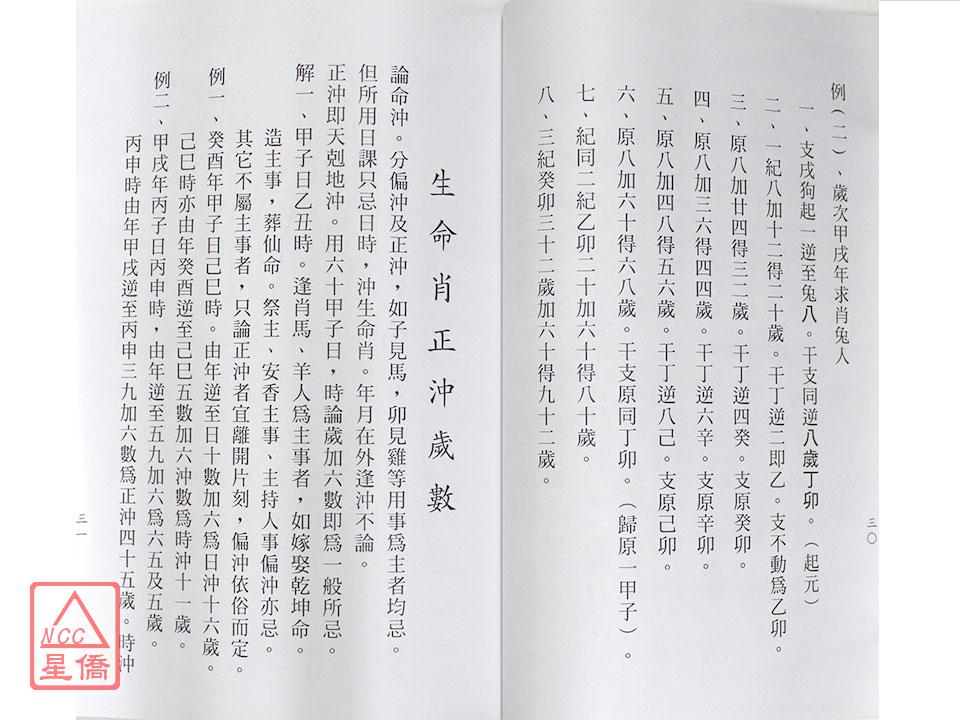 例(二)、歲次甲戌年求肖兔人
一、支戌狗起一逆至兔八。干支同逆八歲丁卯。(起元)
二、一紀八加十二得二十歲。干丁逆二即乙。支不動為乙卯。
三、原八加廿四得三二歲。干丁逆四癸。支原癸卯。
四、原八加三六得四四歲。干丁逆六辛。支原辛卯。
五、原八加四八得五六歲。干丁逆八己。支原己卯。
六、原八加六十得六八歲。干支原同丁卯。(歸原一甲子)。
七、紀同二紀乙卯二十加六十得八十歲。
八、三紀癸卯三十二歲加六十得九十二歲。
三〇
生命肖正沖歲數
論命沖。分偏沖及正沖,如子見馬,卯見雞等用事爲主者均忌。
但所用日課只忌日時,沖生命肖。年月在外逢沖不論。
正沖即天剋地沖。用六十甲子日,時論歲加六數即爲一般所忌。
解一、甲子日乙丑時。逢肖馬、羊人爲主事者,如嫁娶乾坤命。
造主事,葬仙命。祭主、安香主事、主持人事偏沖亦忌。
其它不屬主事者,只論正沖者宜離開片刻,偏沖依俗而定。
例一、癸酉年甲子日己巳時。由年逆至日十數加六爲日沖十六歲。
己巳時亦由年癸酉逆至己巳五數加六沖數爲時沖十一歲。
例二、甲戌年丙子日丙申時,由年逆至五九加六爲六五及五歲。
丙申時由年甲戌逆至丙申三九加六數爲正沖四十五歲。時沖
三一
NCC
星僑